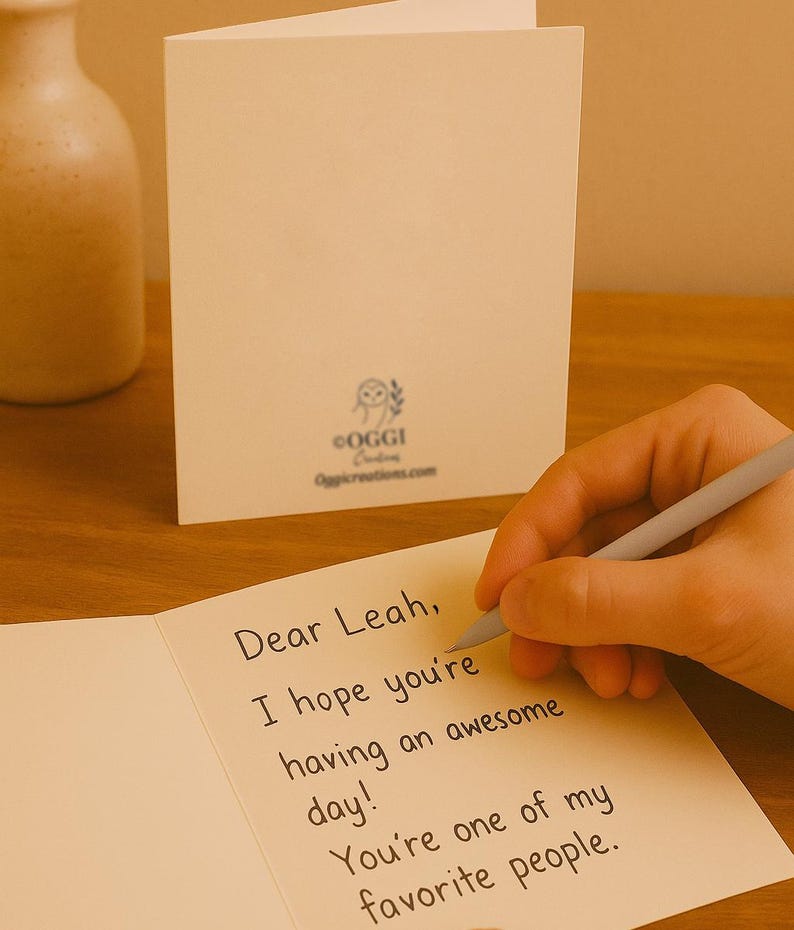 ©OGGI
Creations
Oggicreations.com
Dear Leah,
I hope you're
having an awesome
day!
You're one of my
favorite people.